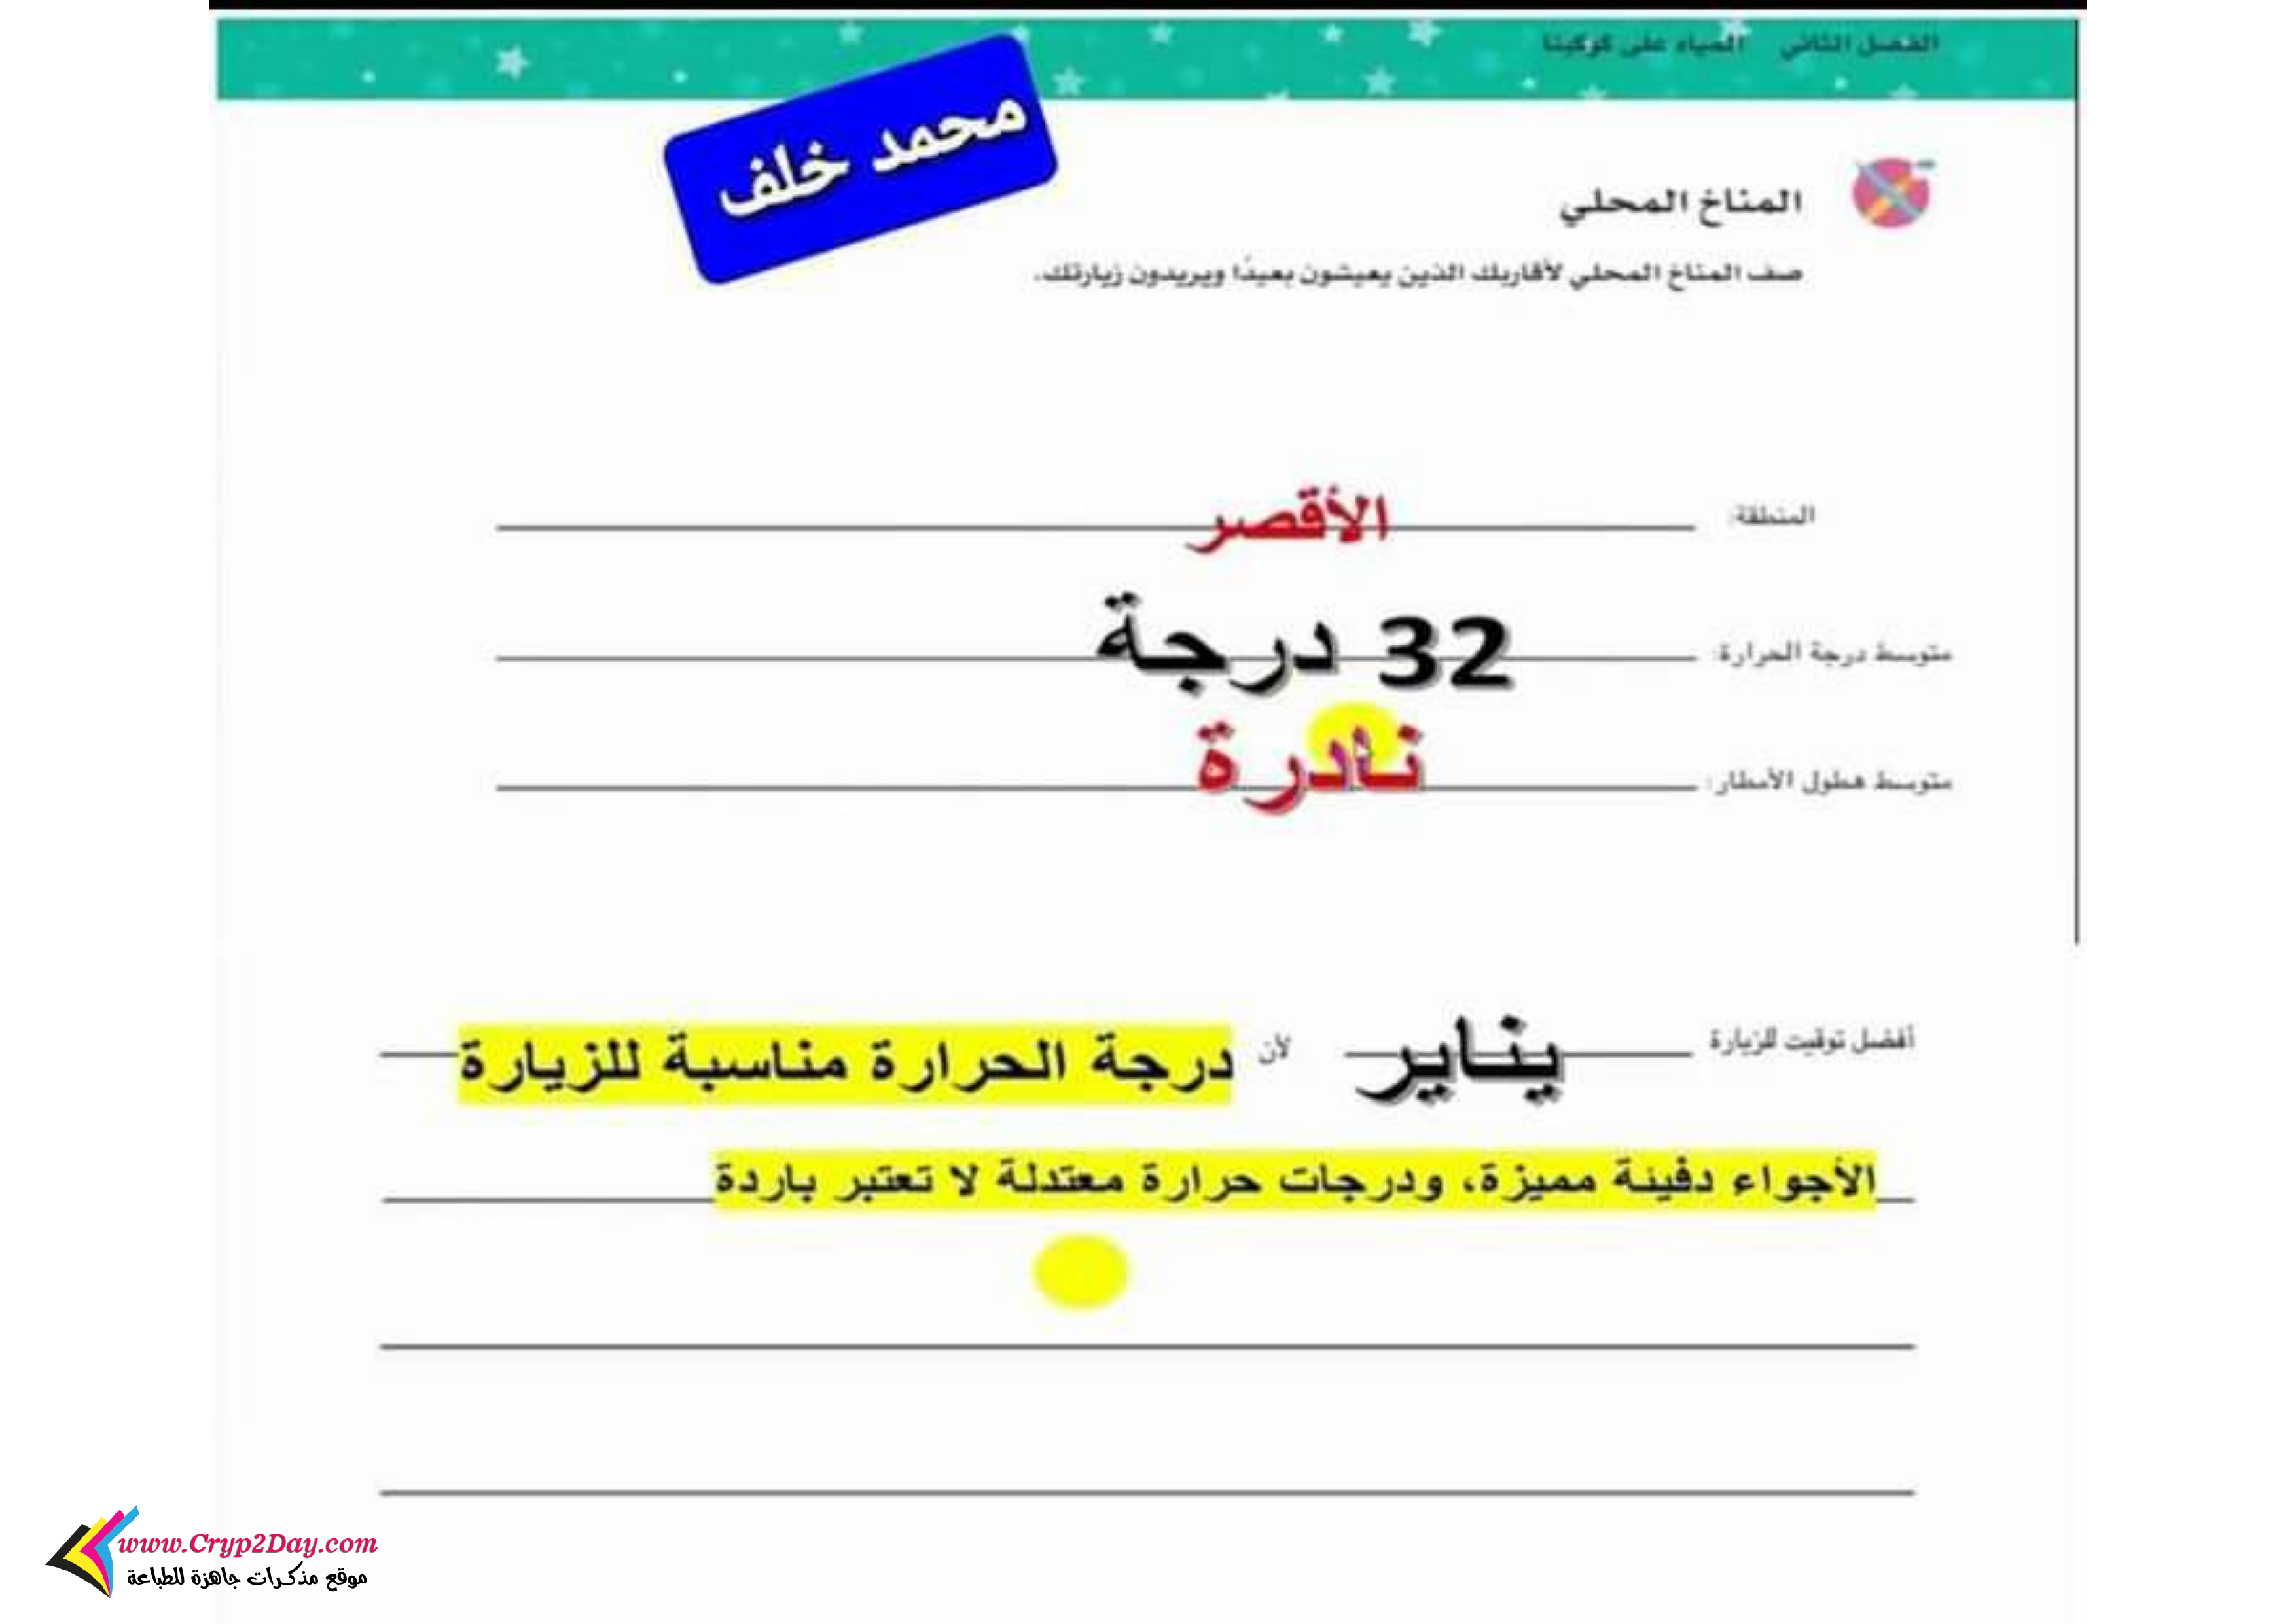 الفصل الثاني المياه على كوكبنا
محمد خلف
المناخ المحلي
صف المناخ المحلي لأقاربك الذين يعيشون بعيدًا ويريدون زيارتك.
المنطقة: الأقصر
متوسط درجة الحرارة: 32 درجة
متوسط هطول الأمطار: نادرة
أفضل توقيت للزيارة يناير لأن درجة الحرارة مناسبة للزيارة
الأجواء دفينة مميزة، ودرجات حرارة معتدلة لا تعتبر باردة
www.Cryp2Day.com
موقع مذكرات جاهزة للطباعة